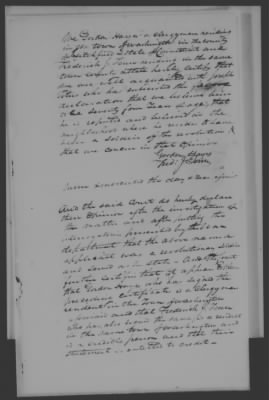 We Gordon Hayes a clergyman residing
in the town of Washington in the county
of Litchfield & State of Connecticut and
Frederick J. residing in the same
town county & State hereby certify that
we are well acquainted with Joseph
who has subscribed the
declaration that we believe him
to be seventy four years of age, that
he is reputed and believed in the
neighborhood where he resides to have
been a soldier of the revolution &
that we concur in that opinion
Gordon Hayes
Fred. J.
Sworn & subscribed the day & year
And the said Court do hereby declare
their opinion after the investigation of
the matter and after putting the
interrogatories prescribed by the War
department that the above named
applicant was a revolutionary soldier
and served as he states. And the Court
further certifies that it appears to them
that Gordon Hayes who has signed the
preceding certificate is a clergyman
resident in the town of Washington
aforesaid and that Frederick J.
who has also signed the same is a resident
in the same town of Washington and
is a credible person and that their
statement is entitled to credit